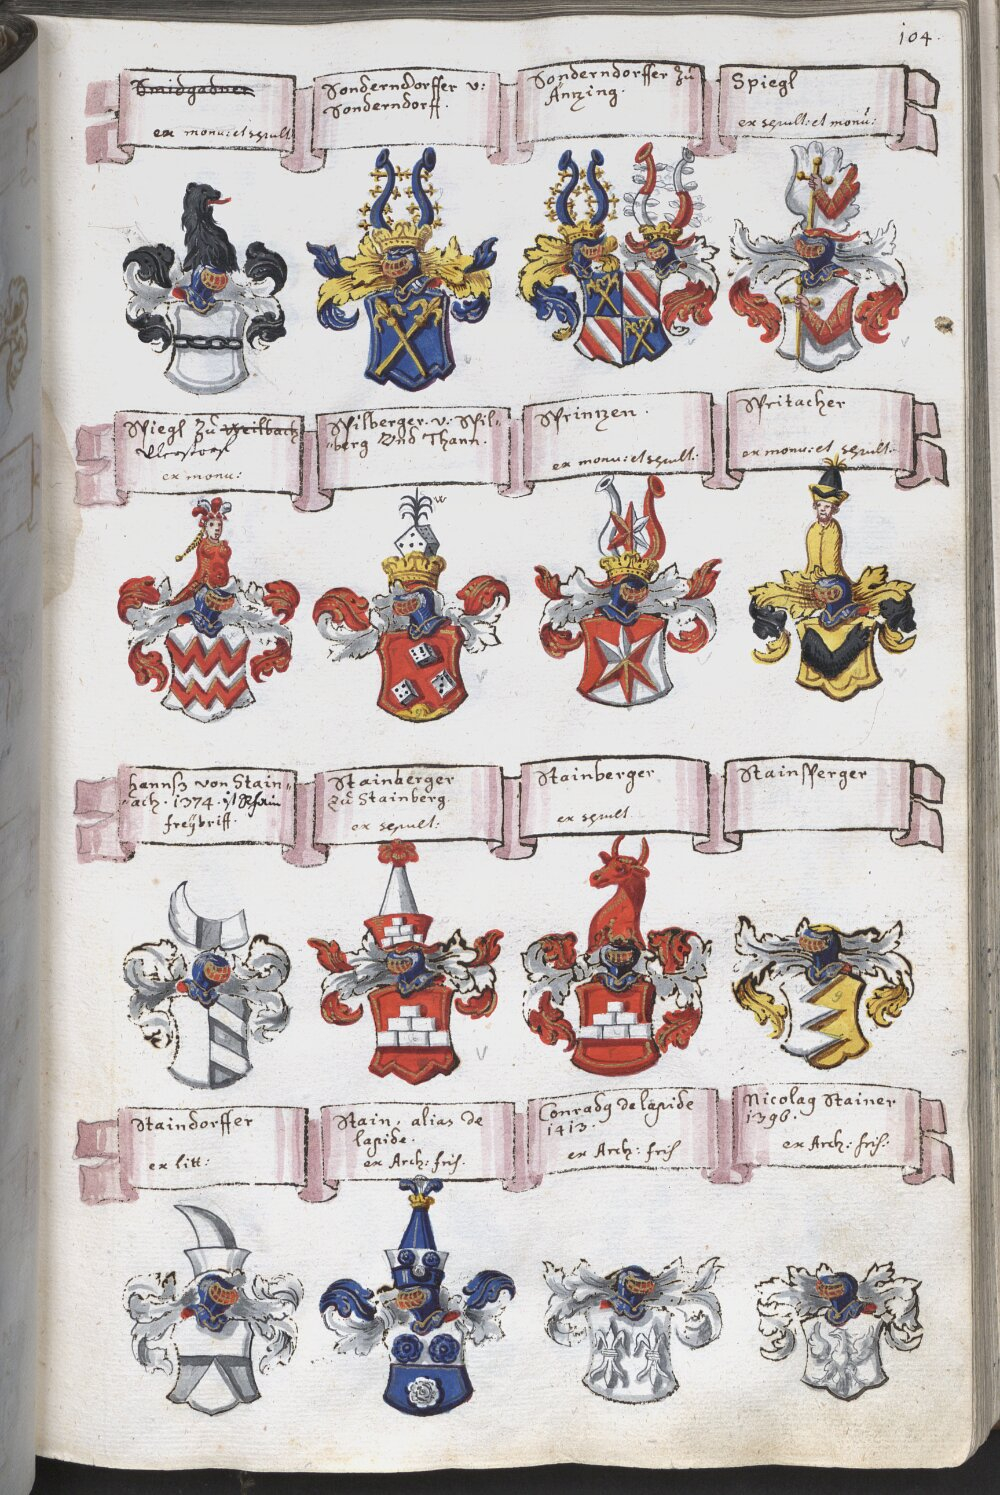 104.
Smidgadner
ex monu: et sepult:
Sonderndorffer v:
Sonderndorff.
Sonderndorffer zů
Äntzing.
Spiegl
ex sepult: et monu:
Spiegl zů Weilbach
ex monu:
Spilberger. v. Spil-
berg Vnd Thann.
Sprintzen.
ex monu: et sepult:
Spritacher
ex monu: et sepult:
W
Hannß von Stain-
ach. 1374.
freÿbriff.
Stainberger
zů Stainberg.
ex sepult:
Stainberger
ex sepult
Stainsperger
g
Staindorffer
ex litt:
Stain, alias de
lapide.
ex Arch: fris.
Conradg de lapide
1413.
ex Arch: fris
Nicolag Stainer
1396.
ex Arch: fris: